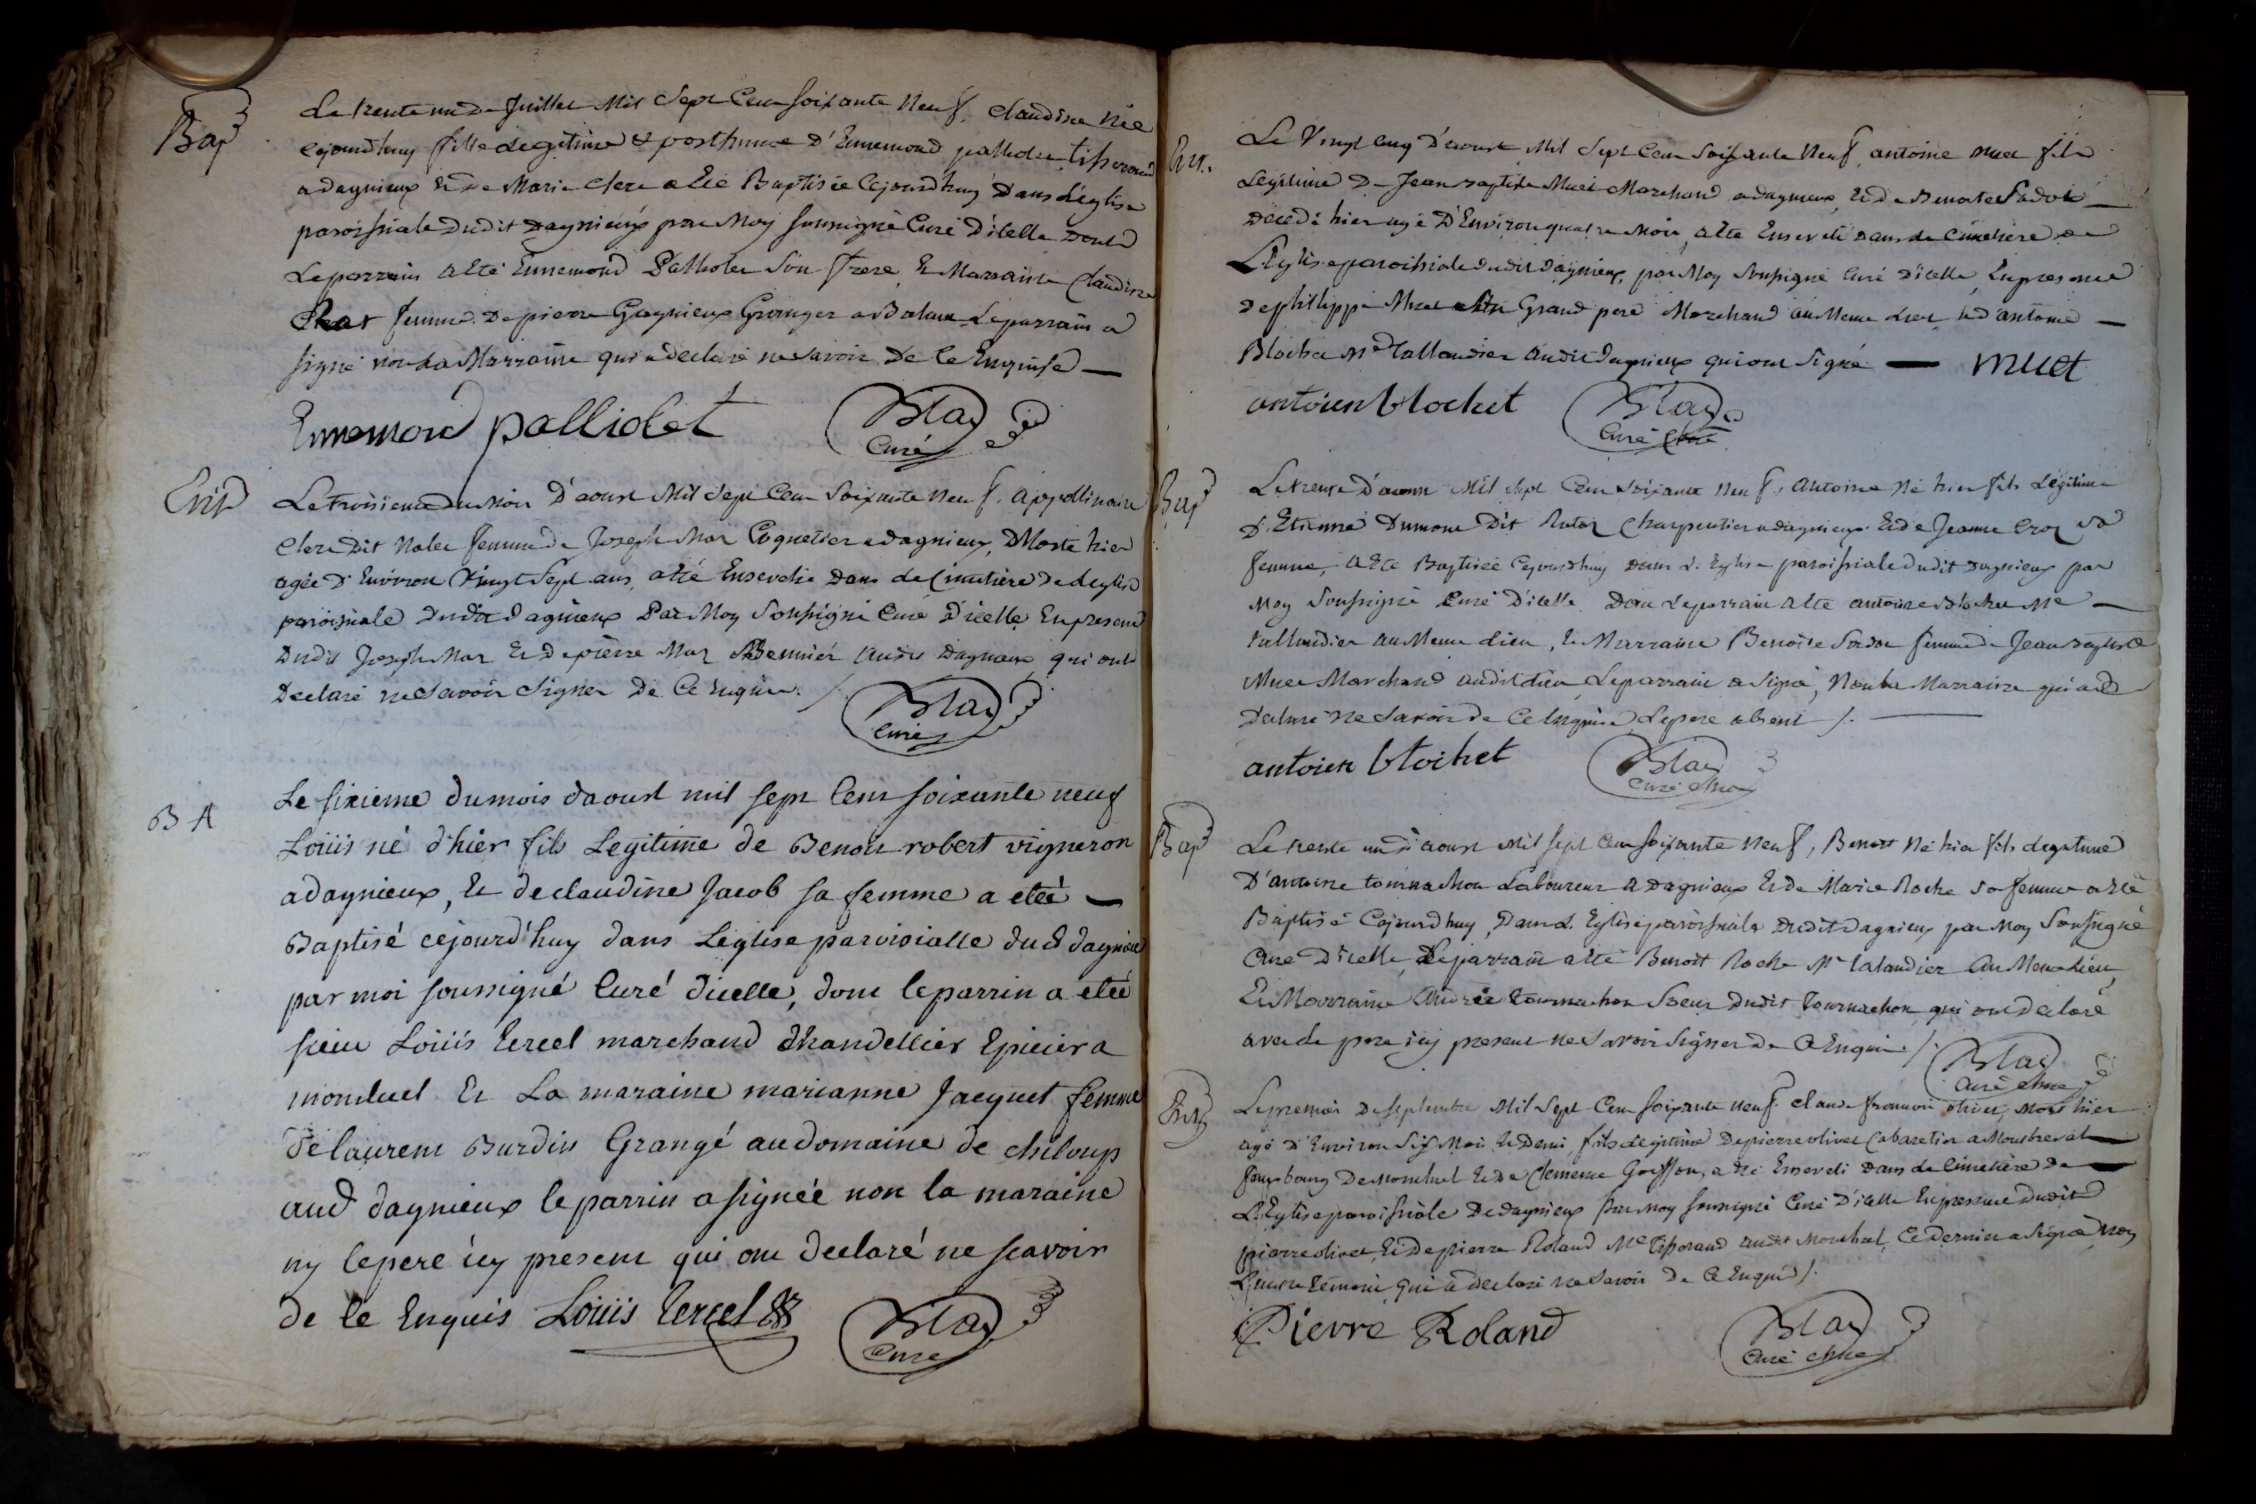 Bap
Le trente un de Juillet Mil Sept Cent soixante Neuf. Claudine née
cejourdhuy fille Legitime & posthume d'Ennemond palliolet tisserand
a dagnieux et de Marie Clere a été Baptisée Cejourdhuy Dans L'église
paroissiale dudit Dagnieux par Moy soussigné Curé D'icelle Dont
Leparrain a été Ennemond Palliolet son frere, et Marraine Claudine
femme de pierre Gagnieux Granger a Balan Leparrain a
signé non La Marraine qui a declaré ne savoir De Ce Enquise
Ennemond palliolet
Blad
Curé
Ent
Le troisieme du Mois D'aoust Mil Sept Cent Soixante Neuf. appollinaire
Clere Dit femme de Joseph Mar Coquetier a dagnieux, Morte hier
agée D'Environ Vingt Sept ans, a été Ensevelie Dans Le Cimetière de L'eglise
paroissiale dudit Dagnieux Par Moy Soussigné Curé D'icelle En presence
Dudit Joseph Mar Et De pierre Mar audit Dagnieux qui ont
Declaré ne Savoir Signer De Ce Enquis ./.
Blad
Curé
B A
Le sixieme dumois daoust mil sept Cent soixante neuf
Loüis né d'hier fils Legitime de Benoit robert vigneron
a dagnieux, Et de claudine Jacob sa femme a eteé
Baptisé cejourd'huy dans Leglise paroisialle dud dagnieu
par moi soussigné Curé dicelle, dont leparrin a eteé
sieur Loüis tercel marchand Chandellier Epicier a
monluel Et La maraine marianne Jacquet femme
de laurent Burdin Grangé au domaine de chiloup
aud dagnieux le parrin a signée non la maraine
ny lepere icy present qui ont declaré ne scavoir
de Ce Enquis Loüis tercel
Blad
Curé
Ent.
Le Vingt Cinq D'aoust Mil Sept Cent Soixante Neuf, antoine muet fils
Légitime De Jean Baptiste Muet Marchand a dagnieux, Et de Benoite Sadot
Decedé hier agé D'Environ quatre Mois, a été Enseveli Dans Le Cimetière de
L'Eglise paroissiale dudit Dagnieux, par Moy Soussigné Curé D'icelle, En presence
De philippe Muet son Grand pere Marchand au Meme Lieu, et d'antoine
Blochet Me Tallandier audit Dagnieux qui ont Signé muet
antoien blochet
Blad
Curé
Bap
Le trente D'aoust Mil Sept Cent Soixante Neuf, Antoine Né hier fils Légitime
D'Etienne Dumont Dit Charpentier a dagnieux Et de Jeanne Croz sa
femme, a été Baptisée Cejourdhuy Dans L'Eglise paroissiale dudit Dagnieux par
Moy Soussigné Curé D'icelle Dont Leparrain a été antoine Blochet Me
tallandier au Meme Lieu, Et Marraine Benoite Sadot femme de Jean Baptiste
Muet Marchand audit Lieu, Leparrain a Signé, Non La Marraine qui a
Declaré Ne Savoir De Ce Enquise, Lepere absent ./.
antoien blochet
Blad
Curé
Bap
Le trente un d'aoust Mil Sept Cent Soixante Neuf, Benoit Né hier fils Legitime
D'antoine tournachon Laboureur a Dagnieux Et de Marie Roche sa femme a été
Baptisé Cejourdhuy, Dans L'Eglise paroissiale dudit Dagnieux par Moy Soussigné
Curé D'icelle, Leparrain a été Benoit Roche Me talandier Au Meme Lieu,
Et Marraine Andrée tournachon Soeur Dudit tournachon, qui ont Declaré
avec Le pere icy present ne Savoir Signer De Ce Enquis ./.
Blad
Curé
Ent
Le premier De Septembre Mil Sept Cent Soixante Neuf, Claude francois olivet, Mort hier
agé D'Environ Six Mois Et Demi, fils Legitime De pierre olivet Cabaretier a
fauxbourg De Montluel Et De Clemence a été Enseveli Dans Le Cimetière De
L'Eglise paroissiale De Dagnieux Par Moy Soussigné Curé D'icelle En presence Dudit
pierre olivet, Et De pierre Roland Me tisserand audit Montluel, Ce Dernier a Signé Non
L'autre temoin qui a declaré ne Savoir De Ce Enquis ./.
Pierre Roland
Blad
Curé